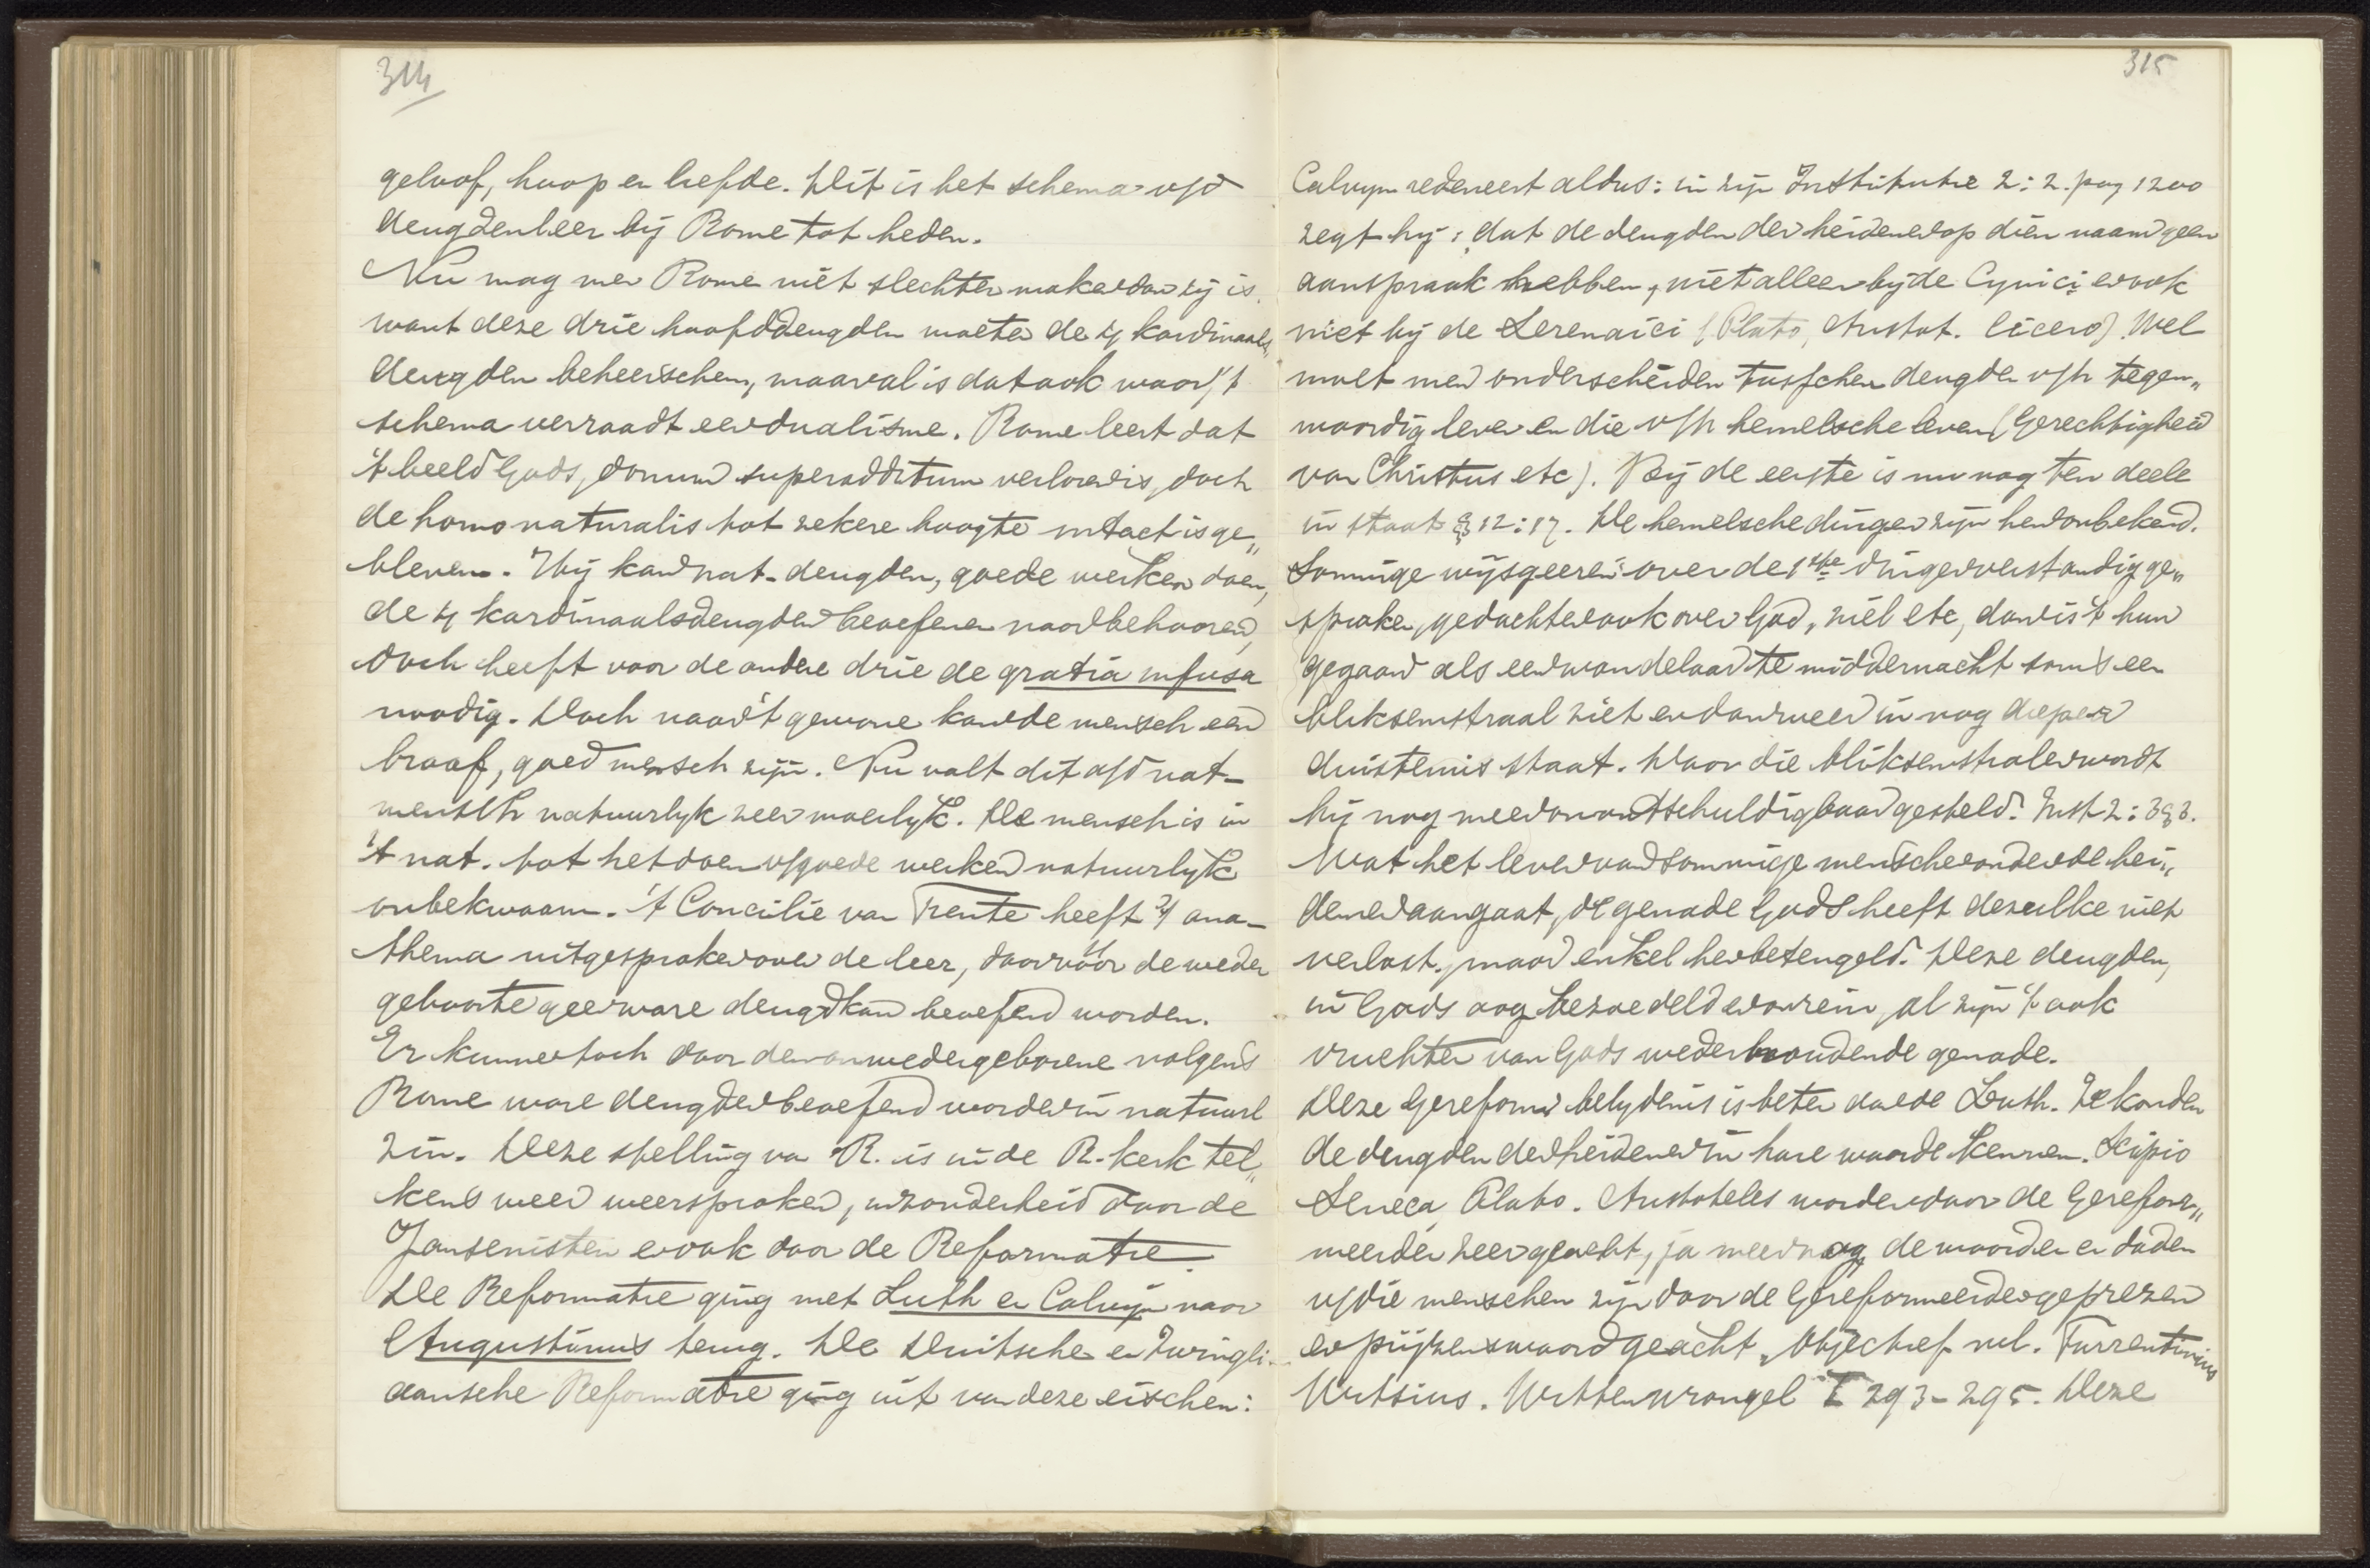 314
geloof, hoop en liefde. Dit is het schema v/d
deugdenleer bij Rome tot heden.
Nu mag men Rome niet slechter maken dan zij is.
want deze drie hoofddeugden moeten de 4 kardinaals„
deugden beheerschen, maar al is dat ook waar, 't
schema verraadt een dualisme. Rome leert dat
't beeld Gods, donum superadditum verloren is, doch
de homo naturalis tot zekere hoogte intact is ge„
bleven. Hij kan nat. deugden, goede werken doen,
de 4 kardinaalsdeugden beoefenen naar behooren,
doch heeft voor de andere drie de gratia infusa
noodig. Doch naar 't gewone kan de mensch een
braaf, goed mensch zijn. Nu valt dit a/d nat-
mensch natuurlyk zeer moeilyk. De mensch is in
't nat. tot het doen v/goede werken natuurlyk
onbekwaam. 't Concilie van Trente heeft 't ana-
thema uitgesproken over de leer, dat vóór de weder
geboorte geen ware deugd kan beoefend worden.
Er kunnen toch door den onwedergeborene volgens
Rome ware deugden beoefend worden in natuurl
zin. Deze stelling van R. is in de R. kerk tel„
kens weer weersproken, inzonderheid door de
Jansenisten en ook door de Reformatie.
De Reformatie ging met Luth en Calvyn naar
Augustinus terug. De Duitsche en Zwingli-
aansche Reformatie ging uit van deze eischen:
315
Calvyn redeneert aldus: in zijn Institutie 2:2. pag 1200
zegt hij: dat de deugden der heidenen op dien naam geen
aanspraak hebben, niet alleen bij de Cynici en ook
niet bij de Serenaici (Plato, Aristot. Cicero). Wel
moet men onderscheiden tusschen deugden v/h tegen„
woordig leven en die v/h hemelsche leven (Gerechtigheid
van Christus etc). Bij de eerste is nu nog ten deele
in staat § 12:17. De hemelsche dingen zijn hen onbekend.
Sommige wijsgeeren over de 1ste dingen verstandig ge„
sproken, gedachten ook over God, ziel etc, dan is 't hun
gegaan als een wandelaar te middernacht soms een
bliksemstraal ziet en dan weer in nog dieper
duisternis staat. Door die bliksemstralen wordt
hij nog meer onontschuldigbaar gesteld. Inst 2:3§3.
Wat het leven van sommige menschen onder de hei„
denen aangaat, de genade Gods heeft dezulke niet
verlost, maar enkel hen beteugeld. Deze deugden,
in Gods oog bezoedeld en onrein, al zijn 't ook
vruchten van Gods wederhoudende genade.
Deze Gereform belydenis is beter dan de Luth. Ze konden
de deugden der heidenen in hare waarde kennen. Scipio
Seneca, Plato. Aristoteles worden door de Gerefor„
meerden zeer geacht, ja meer nog, de woorden en daden
v/die menschen zijn door de Gereformeerden geprezen
en prijzenswaard geacht, Objectief nl. Turrentinius
Witsius. Wittewrongel I 293-295. Deze